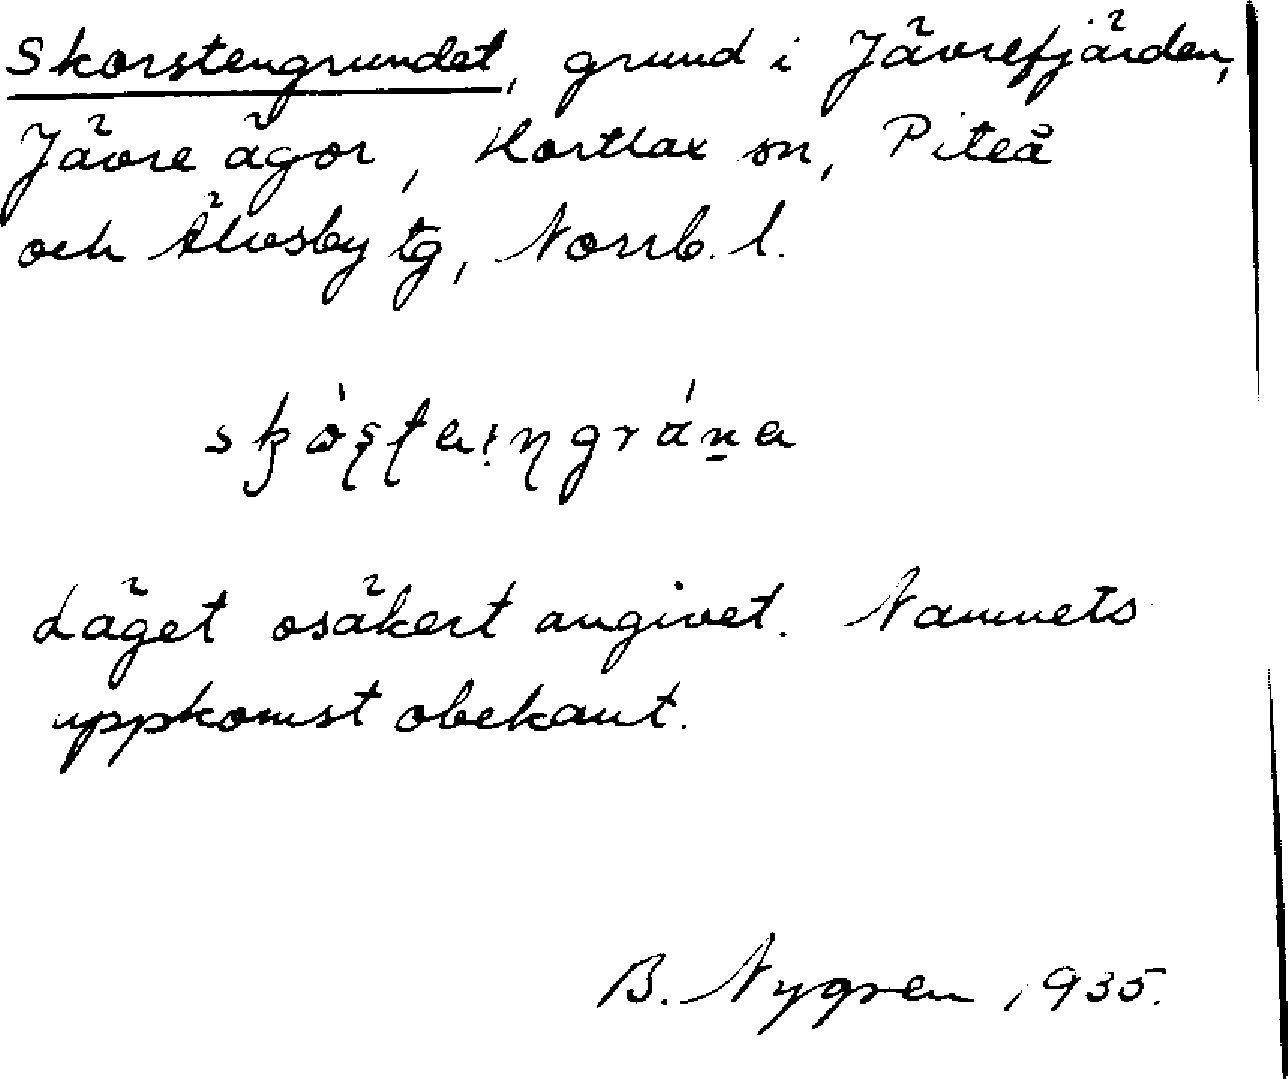 Skorstengrundet, grund i Jävrefjärden,
Jävre ägor, Hortlax sn, Piteå
och Älvsby tg, Norrb. l.
Läget osäkert angivet. Namnets
uppkomst obekant.
B. Nygren 1935.